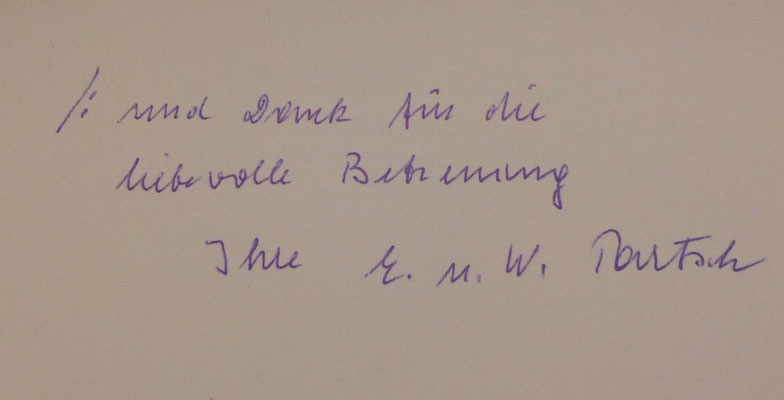 /: und Dank für die
liebevolle Betreuung
Ihre E. u. W. Partsch